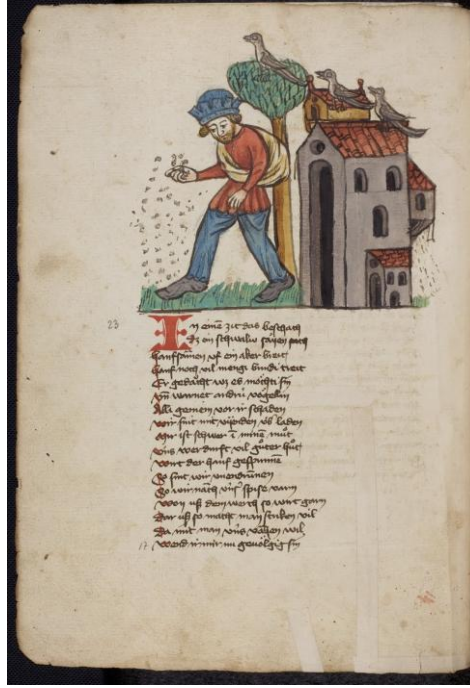 23
In eine zit das beschach
Dz ein schwalw säyen sach
hanfsamen vf ein aker breit
hanf noch vil mengi bindi treit
Er gedacht wz es möchti sin
vn warnet andri vogellin
Alli gemein vor ir schaden
wir sint mit vigenden vb laden
mir ist schwer i mine mut
vns werdurft vil guter hut
wirt der hanf gespunnen
So sint wir
So wir nach vnsr spise varn
won vss dem werch so wirt garn
Dar vss so machet man striken vil
Da mit man vns vahen wil
17 wend ir mir nu gevölgig sin